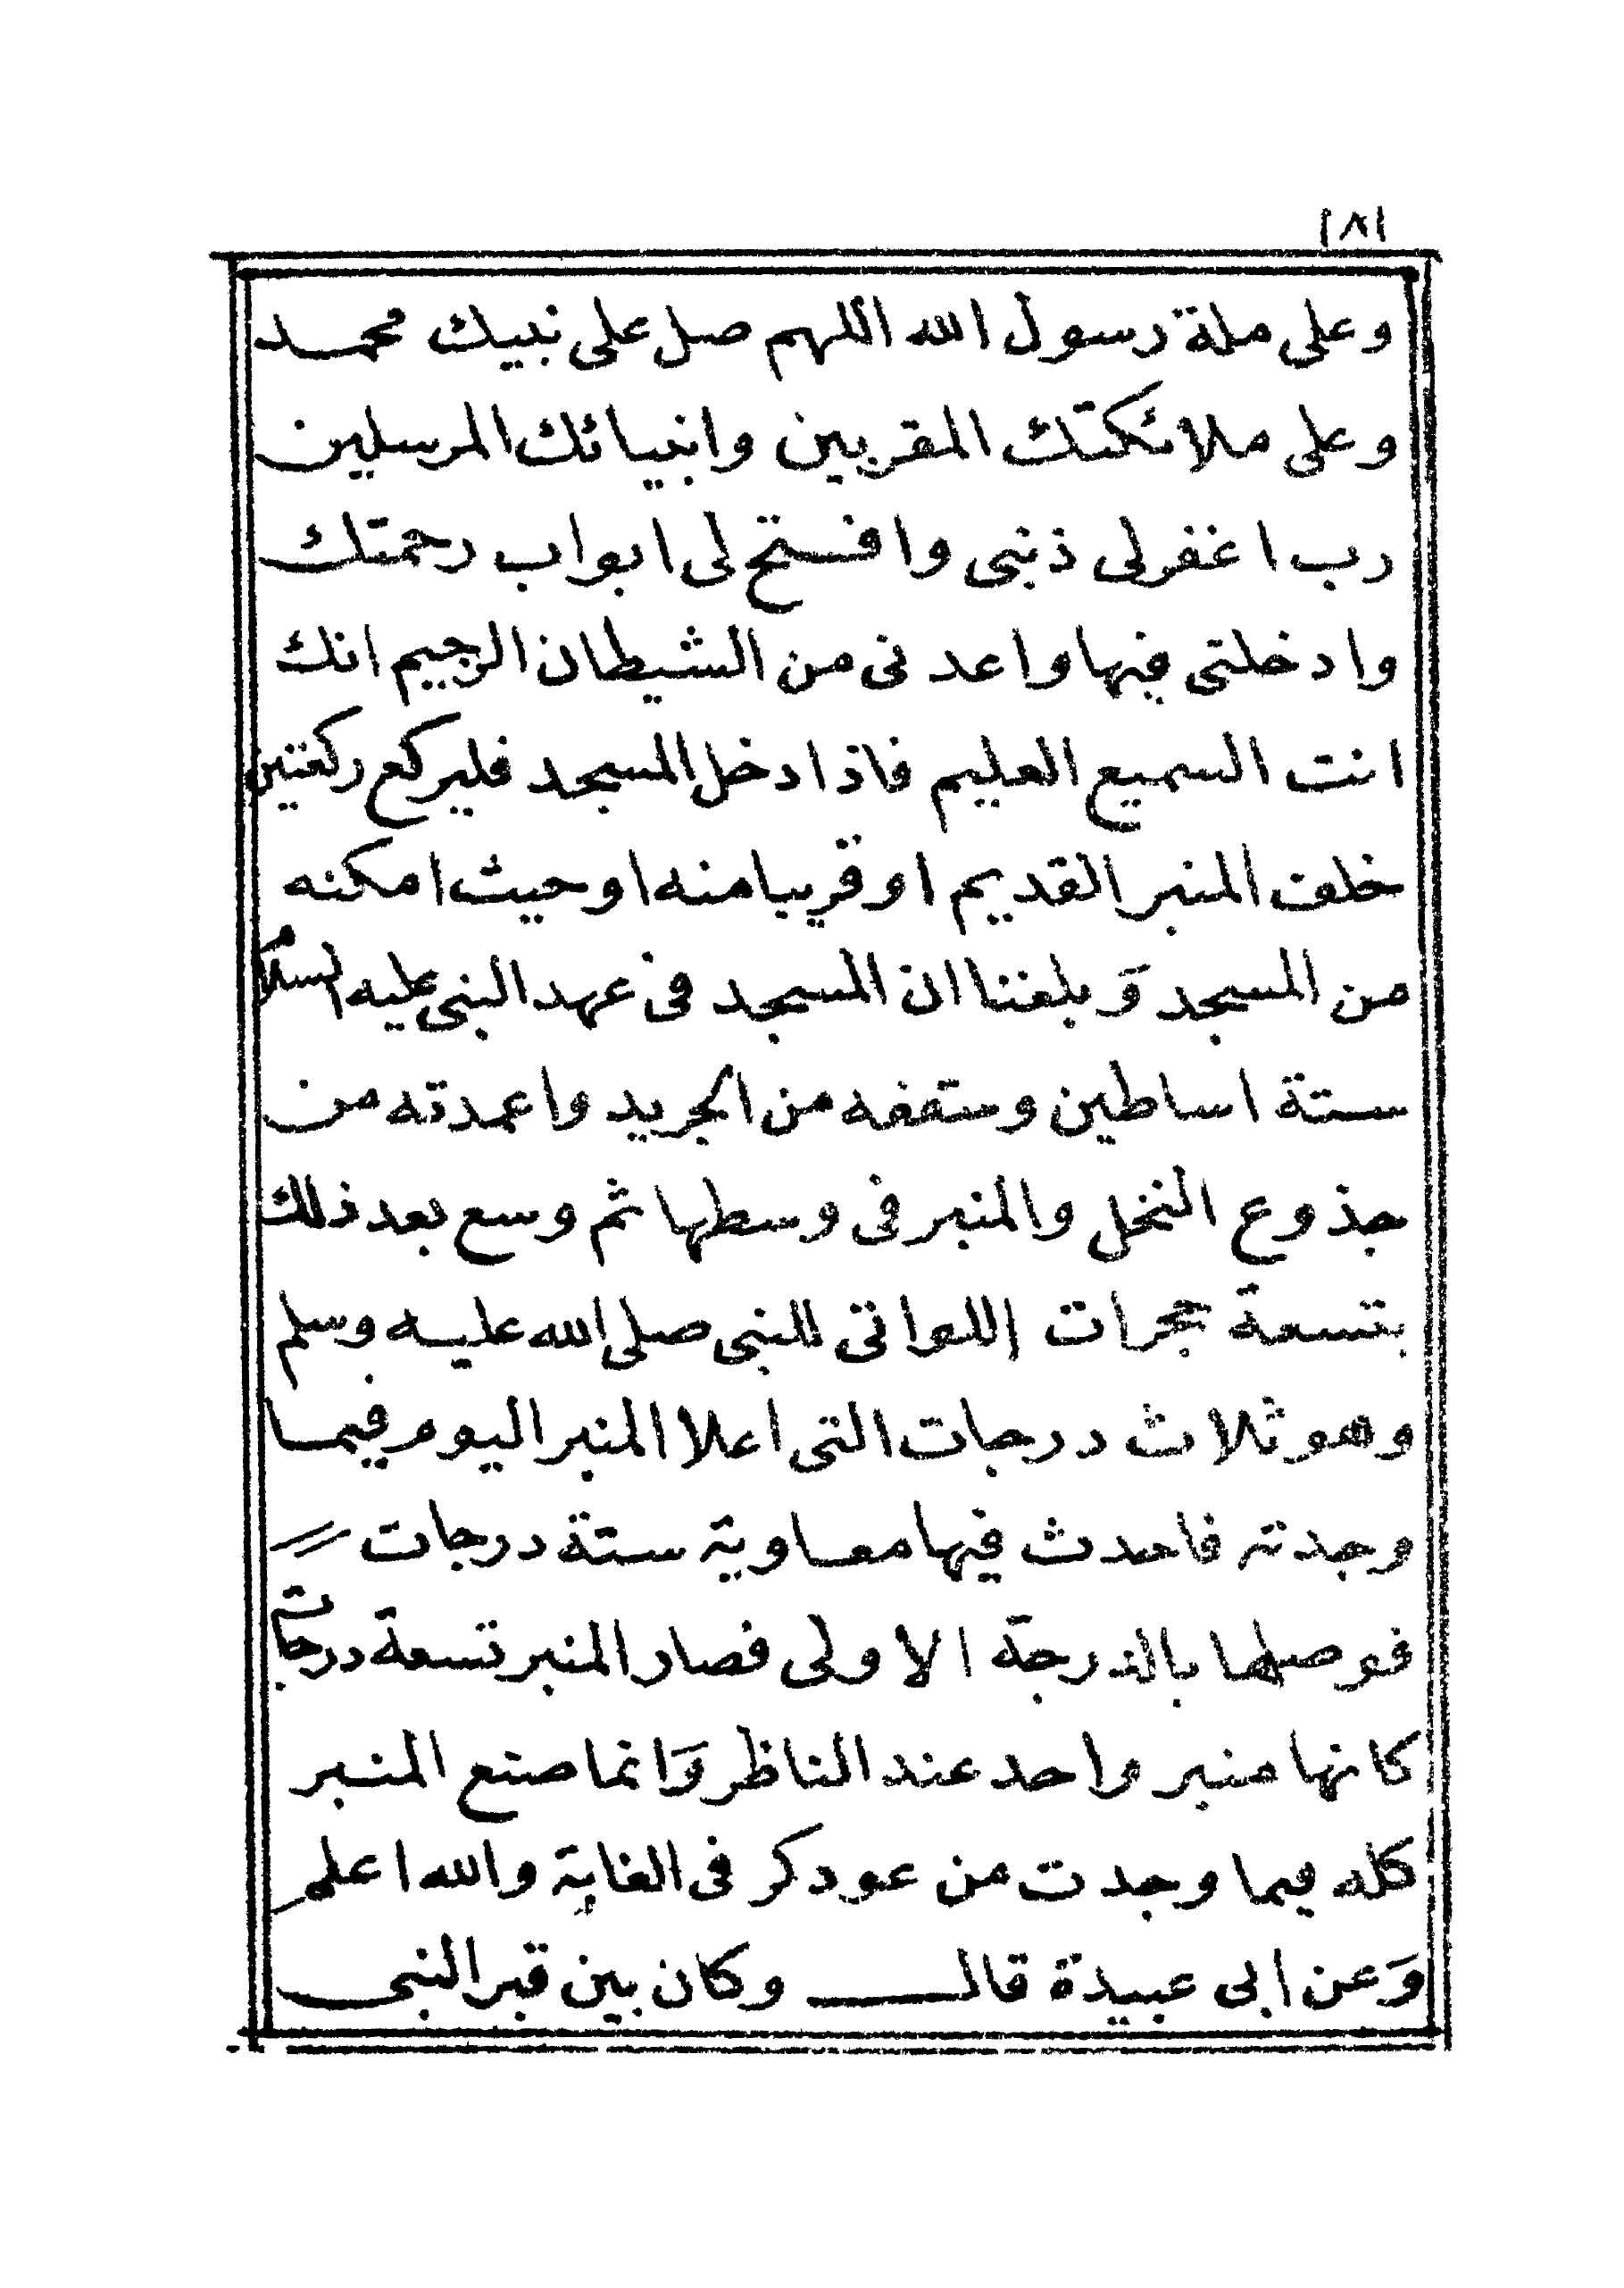 ١٨١
وعلى ملة رسول الله اللهم صل على نبيك محمد
وعلى ملائكتك المقربين وانبيائك المرسلين
رب اغفرلى ذنبى وافتح لى ابواب رحمتك
وادخلتى فيها واعدنى من الشيطان الرجيم انك
انت السميع العليم فاذا دخل المسجد فليركع ركعتين
خلف المنبر القديم او قريبا منه او حيث امكنه
من المسجد وَبلغنا ان المسجد فى عهد النبى عليه السلام
ستة اساطين وسقفه من الجريد واعمدته من
جذوع النخل والمنبر فى وسطها ثم وسع بعد ذلك
بتسعة حجرات اللواتى للنبى صلى الله عليه وسلم
وهو ثلاث درجات التى اعلا المنبر اليوم فيما
وجدته فاحدث فيها معاوية ستة درجات
فوصلها بالدرجة الاولى فصار المنبر تسعة درجات
كانها منبر واحد عند الناظر وَانما صنع المنبر
كله فيما وجدت من عود كر فى الغابة والله اعلم
وَعن ابى عبيدة قال وكان بين قبر النبى